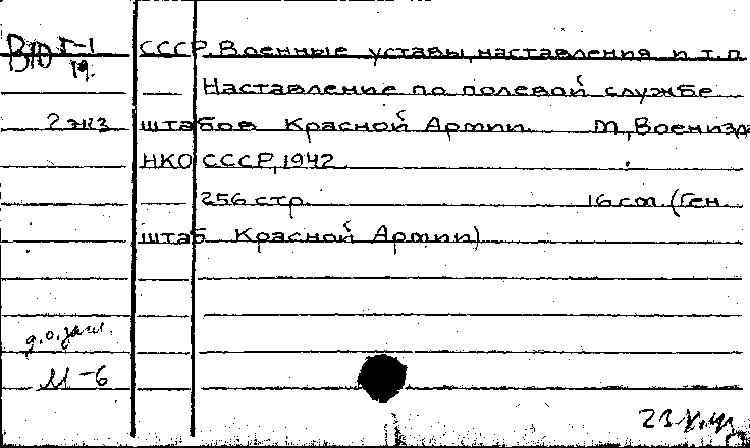 В10 Г-1 СССР. Военные уставы, наставления и т.п
19.
— Наставление по полевой службе
2 экз штабов Красной Армии. М, Воениздат
НКО СССР, 1942.
256 стр. 16 см. (Ген.
штаб Красной Армии)
М-6
23